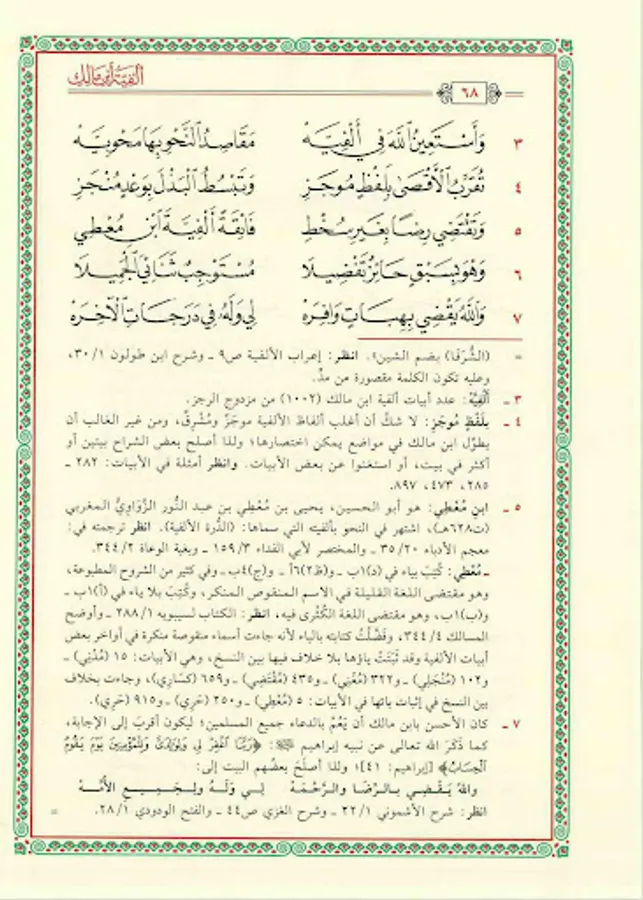 ألفية ابن مالك
٦٨
٣ وَأَسْتَعِينُ اللَّهَ فِي أَلْفِيَّهْ مَقَاصِدُ النَّحْوِ بِهَا مَحْوِيَّهْ
٤ تُقَرِّبُ الْأَقْصَى بِلَفْظٍ مُوجَزِ وَتَبْسُطُ الْبَذْلَ بِوَعْدٍ مُنْجَزِ
٥ وَتَقْتَضِي رِضًا بِغَيْرِ سُخْطِ فَائِقَةً أَلْفِيَّةَ ابْنِ مُعْطِي
٦ وَهْوَ بِسَبْقٍ حَائِزٌ تَفْضِيلَا مُسْتَوْجِبٌ ثَنَائِيَ الْجَمِيلَا
٧ وَاللَّهُ يَقْضِي بِهِبَاتٍ وَافِرَهْ لِي وَلَهُ فِي دَرَجَاتِ الْآخِرَهْ
= (الشُّرَفَا) بضم الشين». انظر: إعراب الألفية ص٩ ـ وشرح ابن طولون ٣٠/١،
وعليه تكون الكلمة مقصورة من مدٍّ.
٣ ـ أَلْفِيَّهْ: عدد أبيات ألفية ابن مالك (١٠٠٢) من مزدوج الرجز.
٤ ـ بِلَفْظٍ مُوجَزِ: لا شكّ أن أغلب ألفاظ الألفية موجَزٌ ومُشْرِقٌ، ومن غير الغالب أن
يطوِّل ابن مالك في مواضع يمكن اختصارها؛ ولذا أصلح بعض الشراح بيتين أو
أكثر في بيت، أو استغنوا عن بعض الأبيات. وانظر أمثلة في الأبيات: ٢٨٢ ـ
٢٨٥، ٤٧٣، ٨٩٧.
٥ ـ ابنِ مُعْطِي: هو أبو الحسين، يحيى بن مُعْطِي بن عبد النُّور الزَّوَاوِيُّ المغربي
(ت٦٢٨هـ)، اشتهر في النحو بألفيته التي سماها: (الدُّرة الألفية). انظر ترجمته في:
معجم الأدباء ٣٥/٢٠ ـ والمختصر لأبي الفداء ١٥٩/٣ ـ وبغية الوعاة ٣٤٤/٢.
ـ مُعْطِي: كُتِبَ بياء في (د)١ب ـ و(ظ٢)٦أ ـ و(ج)٤ب ـ وفي كثير من الشروح المطبوعة،
وهو مقتضى اللغة القليلة في الاسم المنقوص المنكر، وكُتِبَ بلا ياء في (أ)١ب ـ
و(ب)١ب، وهو مقتضى اللغة الكُثْرى فيه. انظر: الكتاب لسيبويه ٢٨٨/١ ـ وأوضح
المسالك ٣٤٤/٤، وفَضَّلْتُ كتابته بالياء لأنه جاءت أسماء منقوصة منكرة في أواخر بعض
أبيات الألفية وقد ثَبَتَتْ ياؤها بلا خلاف فيها بين النسخ، وهي الأبيات: ١٥ (مُدْنِي) ـ
و١٠٢ (مُنْجَلِي) ـ و٣٢٢ (مُغْنِي) ـ و٤٣٥ (مُقْتَضِي) ـ و٦٥٩ (كَسَارِي)، وجاءت بخلاف
بين النسخ في إثبات يائها في الأبيات: ٥ (مُعْطِي) ـ و٢٥٠ (حَرِي) ـ و٩١٥ (حَرِي).
٧ ـ كان الأحسن بابن مالك أن يَعُمَّ بالدعاء جميع المسلمين؛ ليكون أقربَ إلى الإجابة،
كما ذَكَرَ الله تعالى عن نبيه إبراهيم ﷺ: ﴿رَبَّنَا اغْفِرْ لِي وَلِوَالِدَيَّ وَلِلْمُؤْمِنِينَ يَوْمَ يَقُومُ
الْحِسَابُ﴾ [إبراهيم: ٤١]؛ ولذا أصلَحَ بعضُهم البيت إلى:
واللهُ يَـقْـضِـي بـالـرِّضَـا والـرَّحْـمَـهْ لِـي وَلَـهُ ولِـجَـمِـيـعِ الأُمَّـهْ
انظر: شرح الأشموني ٢٢/١ ـ وشرح الغزي ص٤٤ ـ والفتح الودودي ٢٨/١. =